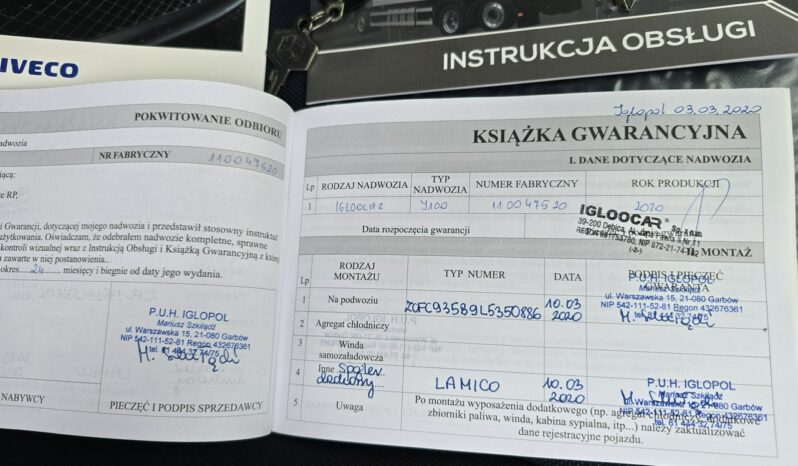 IVECO
INSTRUKCJA OBSŁUGI
POKWITOWANIE ODBIORU
nadwozia
NR FABRYCZNY 11 0 0 4 7 5 2 0
jącą:
e RP,
i Gwarancji, dotyczącej mojego nadwozia i przedstawił stosowny instruktaż
użytkowania. Oświadczam, że odebrałem nadwozie kompletne, sprawne
kontroli wizualnej wraz z Instrukcją Obsługi i Książką Gwarancyjną z której
zawarte w niej postanowienia..
okres....24.... miesięcy i biegnie od daty jego wydania.
P.U.H. IGLOPOL
Mariusz Szkilądź
ul. Warszawska 15, 21-080 Garbów
NIP 542-111-52-81 Regon 432676361
tel. 81 444 32 74/75
NABYWCY
PIECZĘĆ I PODPIS SPRZEDAWCY
Iglopol 03.03.2020
KSIĄŻKA GWARANCYJNA
I. DANE DOTYCZĄCE NADWOZIA
Lp RODZAJ NADWOZIA TYP NADWOZIA NUMER FABRYCZNY ROK PRODUKCJI
1 IGLOOCAR J100 11 0 0 4 7 5 2 0 2020
Data rozpoczęcia gwarancji
IGLOOCAR Sp. z o.o.
39-200 Dębica,
NIP 872-21-74-
II. MONTAŻ
Lp RODZAJ MONTAŻU TYP NUMER DATA PODPIS I PIECZĘĆ GWARANTA
1 Na podwoziu ZCFC935B9L5350886 10.03 2020
P.U.H. IGLOPOL
Mariusz Szkilądź
ul. Warszawska 15, 21-080 Garbów
NIP 542-111-52-81 Regon 432676361
2 Agregat chłodniczy
3 Winda samozaładowcza
4 Inne Spojler dachowy LAMICO 10.03 2020
P.U.H. IGLOPOL
Mariusz Szkilądź
ul. Warszawska 15, 21-080 Garbów
NIP 542-111-52-81 Regon 432676361
tel. 81 444 32 74/75
5 Uwaga Po montażu wyposażenia dodatkowego (np. agregat chłodniczy, dodatkowe
zbiorniki paliwa, winda, kabina sypialna, itp...) należy zaktualizować
dane rejestracyjne pojazdu.